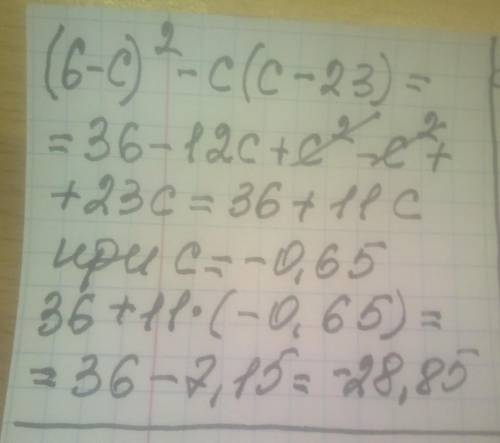 (6-c)² - c(c - 23) =
= 36 - 12c + c² - c² +
+ 23c = 36 + 11c
при c = -0,65
36 + 11·(-0,65) =
= 36 - 7,15 = -28,85